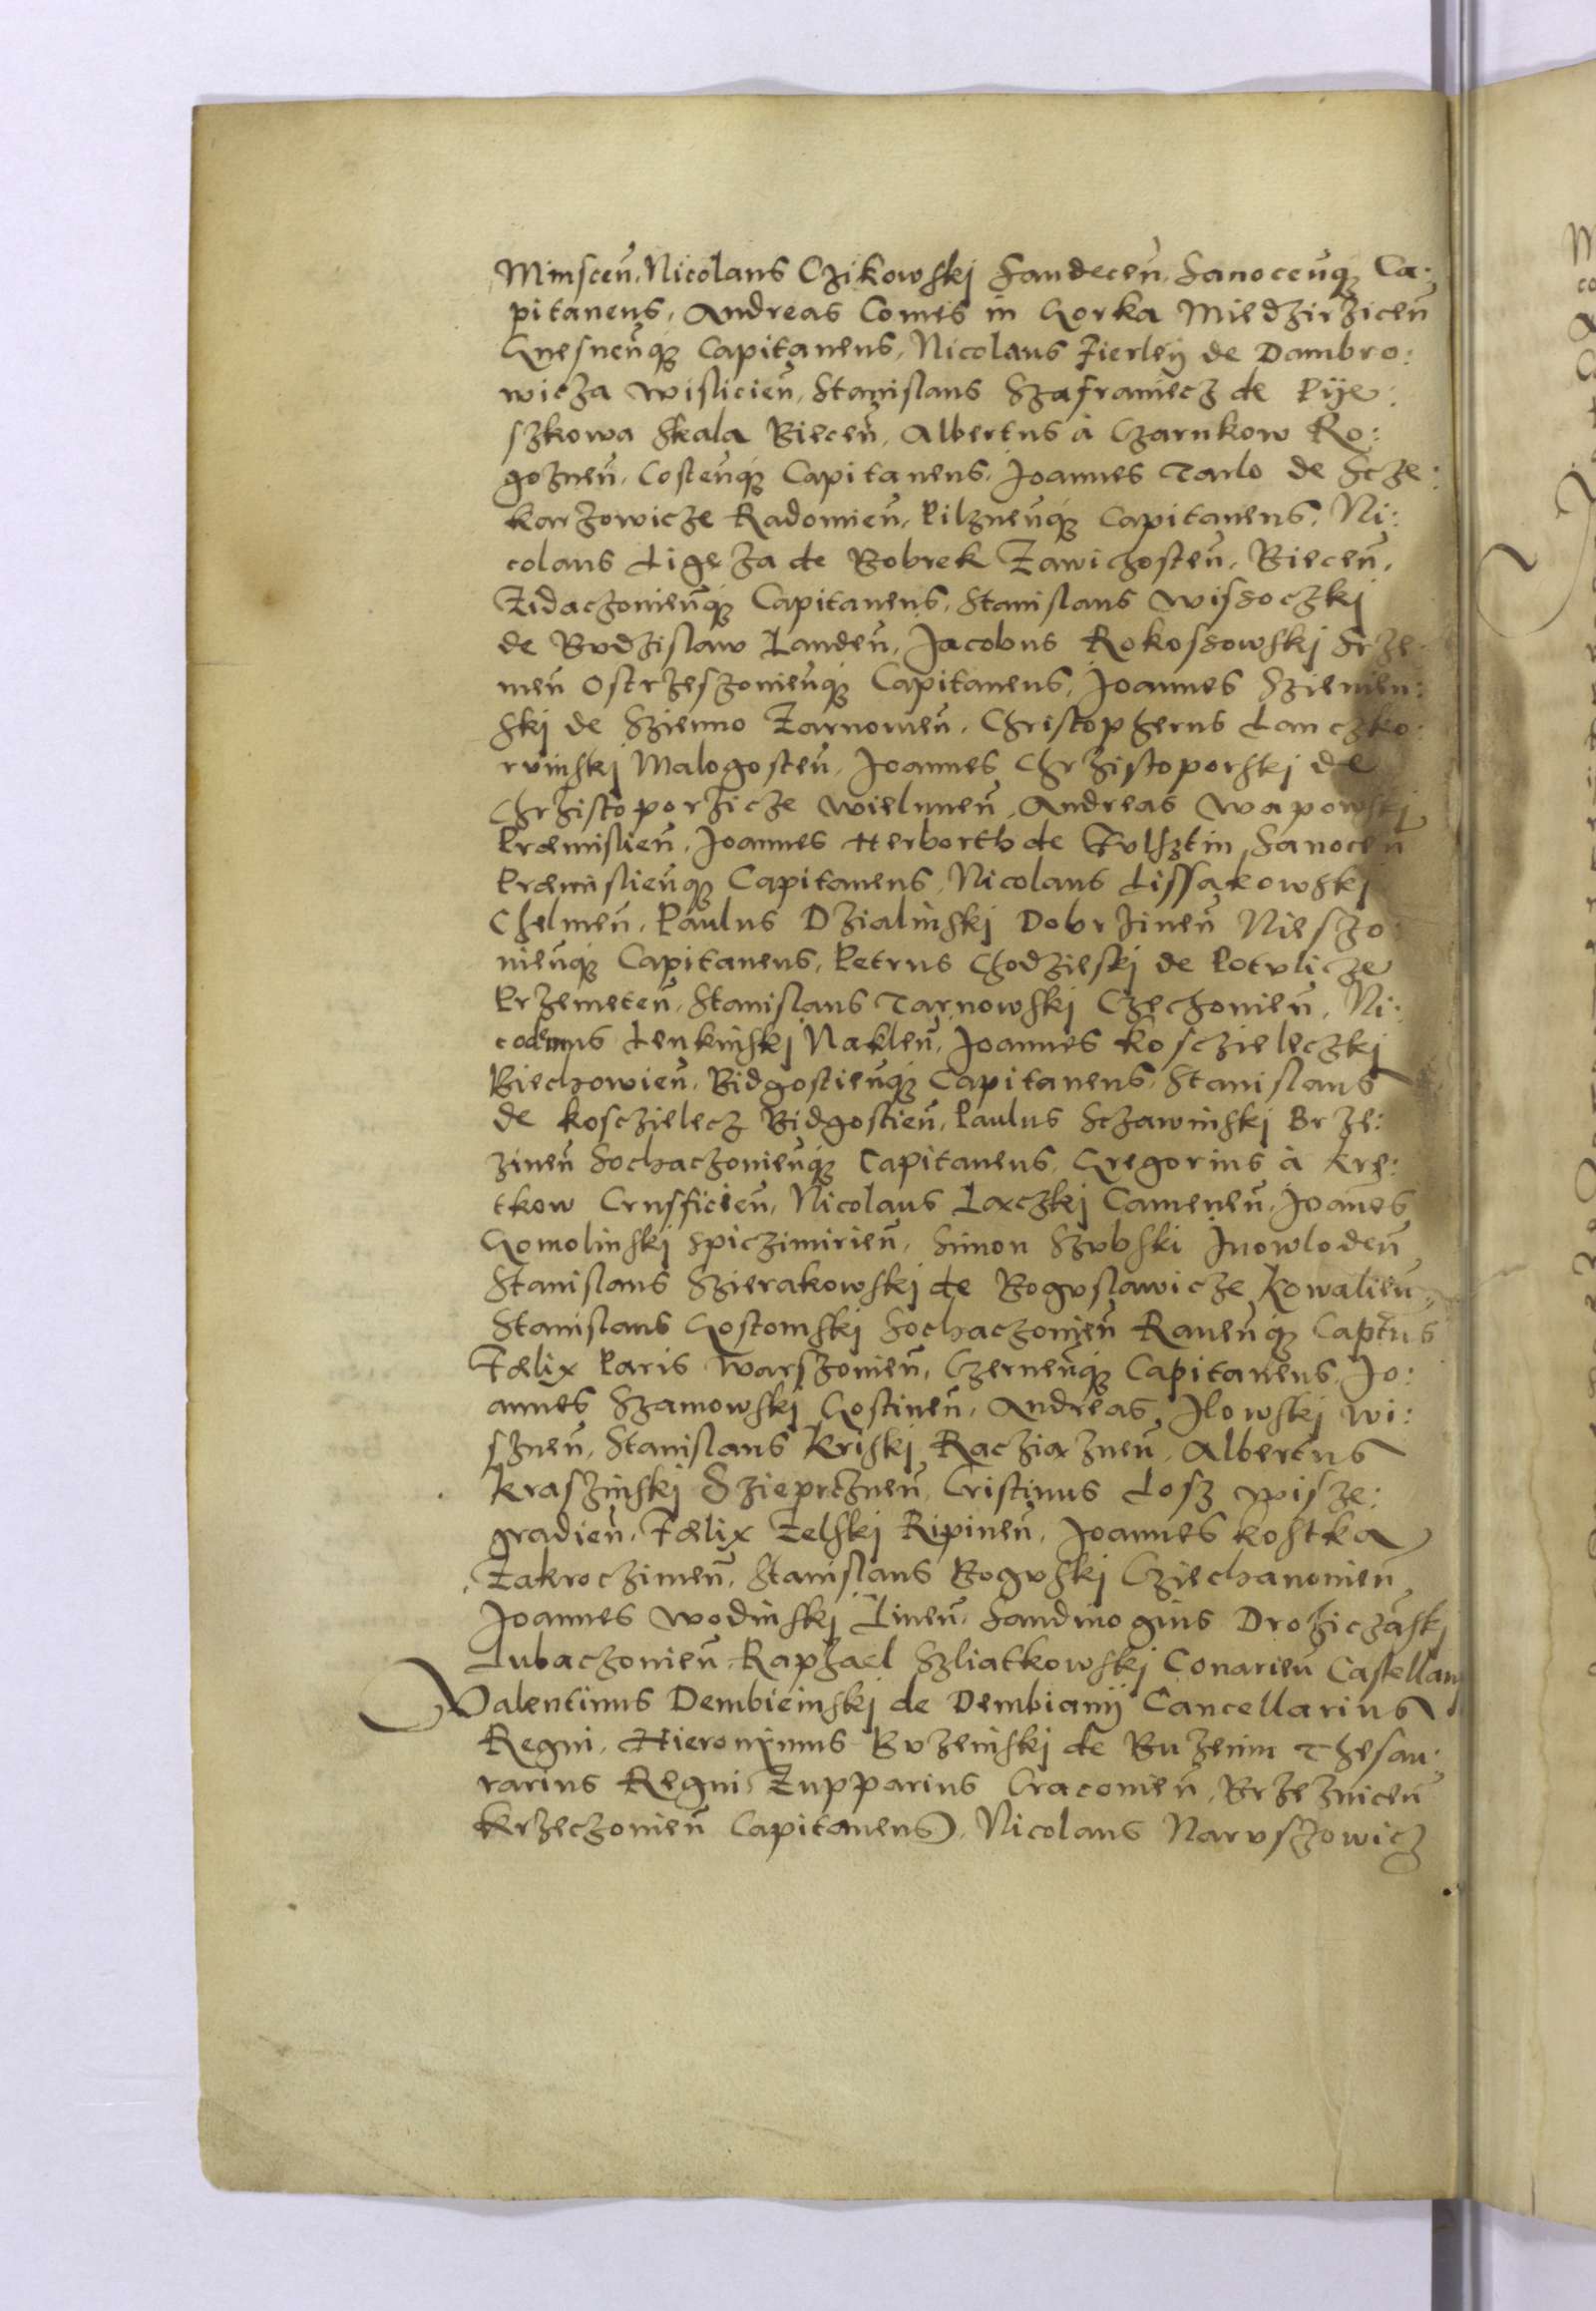 Minscen̄, Nicolaus Czikowskj Sandecen̄, Sanocen̄q̃ Ca:
pitaneus, Andreas Comes in Gorka Miedzirzicen̄
Gnesnen̄q̃ Capitaneus, Nicolaus Fierleÿ de Dambro:
wicza Wislicien̄, Stanislaus Szafraniecz de Pÿe:
szkowa Skala Biecen̄, Albertus à Czarnkow Ro:
goznen̄, Costen̄q̃ Capitaneus, Joannes Tarlo de Scze:
karzowicze Radomien̄, Pilznen̄q̃ Capitaneus, Ni:
colaus Ligęza de Bobrek Zawichosten̄, Biecen̄,
Zidaczouien̄q̃ Capitaneus, Stanislaus Wissoczkj
de Budzislaw Landen̄, Jacobus Rokossowskj Srze:
men̄ Ostrzeszouien̄q̃ Capitaneus, Joannes Szienien:
skj de Szienno Zarnouien̄, Christopherus Lanczko:
ruinskj Malogosten̄, Joannes Chrzistoporskj de
Chrzistoporzicze Wielunen̄, Andreas Wapowskj
Præmislien̄, Joannes Herborth de Fulsztin Sanocen̄
Præmislien̄q̃ Capitaneus, Nicolaus Lissakowskj
Chelmen̄, Paulus Dzialinskj Dobrzinen̄ Nieszo:
uien̄q̃ Capitaneus, Petrus Chodzieskj de Potulicze
Przemeten̄, Stanislaus Tarnowskj Czechouien̄, Ni:
codemus Lenkinskj Naklen̄, Joannes Kosczieleczkj
Biechowien̄, Bidgostien̄q̃ Capitaneus, Stanislaus
de Kosczielecz Bidgostien̄, Paulus Sczawinskj Brze:
zinen̄ Sochaczouien̄q̃ Capitaneus, Gregorius à Krę:
tkow Crusficien̄, Nicolaus Lączkj Camenen̄, Joañes
Gomolinskj Spiczimirien̄, Simon Szubski Inowloden̄
Stanislaus Szierakowskj de Boguslawicze Kowalien̄,
Stanislaus Gostomskj Sochaczouien̄ Rauen̄q̃ Captūs
Fælix Paris Warszouien̄, Czernen̄q̃ Capitaneus, Jo:
annes Szamowskj Gostinen̄, Andreas Ilowskj Wi:
sznen̄, Stanislaus Kriskj Racziąznen̄, Albertus
Kraszinskj Szieprcznen̄, Cristinus Losz Wisze:
gradien̄, Fælix Zelskj Ripinen̄, Joannes Kostka
Zakroczimen̄, Stanislaus Boguskj Cziechanouien̄
Joannes Wodinskj Liuen̄, Sandiuogius Drohiczãskj
Lubaczouien̄, Raphael Szliatkowskj Conarien̄ Castellanj
Valentinus Dembieinskj de Dembianÿ Cancellarius
Regni, Hieronÿmus Buzeinskj de Buzenin Thesau:
rarius Regni, Zupparius Cracouien̄, Brzeznicen̄
Krzeczouien̄ Capitaneus, Nicolaus Naruszowicz